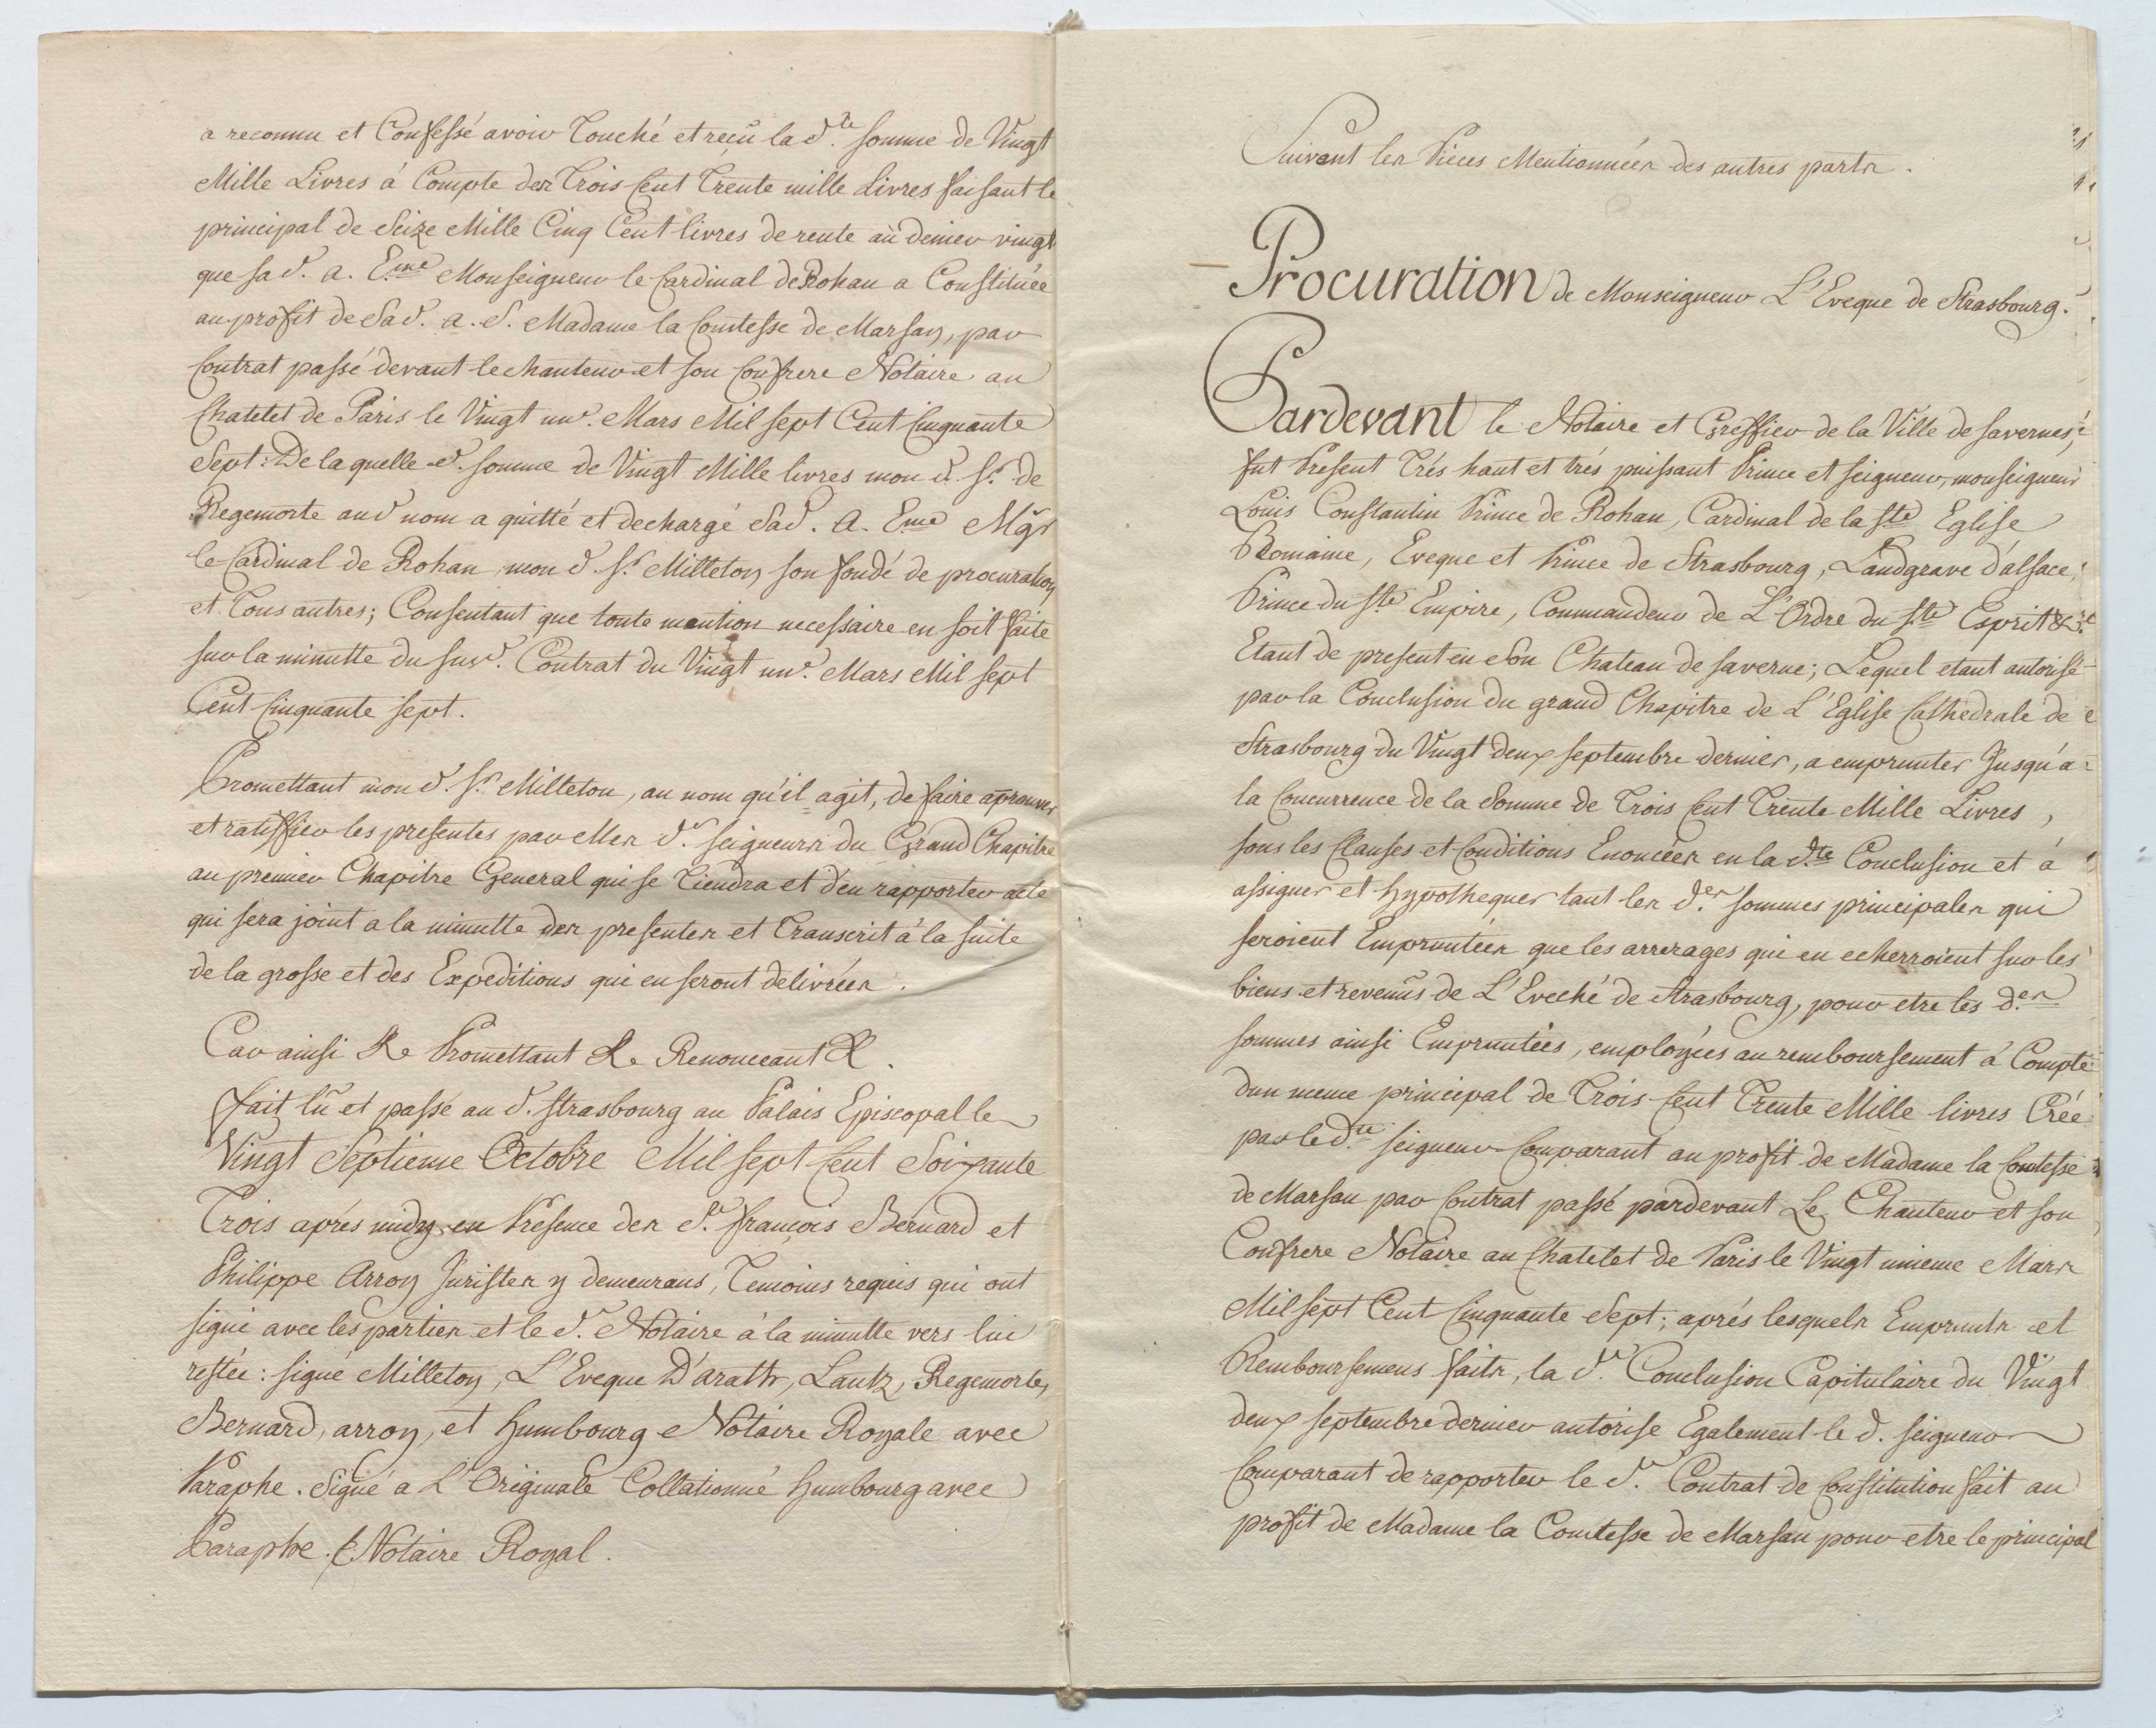 a reconnu et Confessé avoir Touché et reçû la d.te somme de Vingt
Mille Livres à Compte des Trois Cent Trente mille Livres faisant le
principal de Seize Mille Cinq Cent livres de rente au denier vingt
que sa d. a. Eme Monseigneur le Cardinal de Rohan a Constituée
au profit de Sa d. a. S. Madame la Comtesse de Marsan, par
Contrat passé devant le chanteur et son Confrere Notaire au
Chatelet de Paris le Vingt un.e Mars Mil sept Cent Cinquante
Sept: De la quelle d. somme de Vingt Mille livres mon d. Sr. de
Regemorte aud nom a quitté et dechargé Sad. A. Eme Mgr
le Cardinal de Rohan, mon d. Sr. Milleton son fondé de procuration
et Tous autres; Consentant que toute mention necessaire en soit faite
sur la minutte du susd. Contrat du Vingt un.e Mars Mil sept
Cent Cinquante sept.
Promettant mon d. Sr. Milleton, au nom qu'il agit, de faire aprouver
et ratiffier les presentes par Mes d. seigneurs du Grand Chapitre
au premier Chapitre General qui se Tiendra et d'en rapporter acte
qui sera joint a la minutte des presentes et Transcrit à la suite
de la grosse et des Expeditions qui en seront delivrées.
Car ainsi &c Promettant &c Renonceant &.
fait lû et passé au d. Strasbourg au Palais Episcopal le
Vingt Septieme Octobre Mil sept Cent Soixante
Trois aprés midy en Présence des Sr. françois Bernard et
Philippe Arroy Juristes y demeurans, Temoins requis qui ont
signé avec les parties et le d. Notaire à la minutte vers lui
restée: signé Milleton, L'Eveque D'arath, Lantz, Regemorte,
Bernard, arroy, et humbourg Notaire Royale avec
Paraphe. Signé a L'Originale Collationné humbourg avec
Paraphe. Notaire Royal.
Suivent les Pieces Mentionnées des autres parts.
Procuration de Monseigneur L'Eveque de Strasbourg.
Pardevant le Notaire et Greffier de la Ville de Savernes,
fut Présent Trés haut et trés puissant Prince et seigneur, monseigneur
Louis Constantin Prince de Rohan, Cardinal de la Ste Eglise
Romaine, Eveque et Prince de Strasbourg, Landgrave d'alsace,
Prince du Ste Empire, Commandeur de L'Ordre du Ste Esprit &c.
Etant de present en Son Chateau de Saverne; Lequel etant autorisé
par la Conclusion du grand Chapitre de L'Eglise Cathedrale de
Strasbourg du Vingt deux septembre dernier, a emprunter Jusqu'a
la Concurrence de la Somme de Trois Cent Trente Mille Livres,
sous les Clauses et Conditions Enoncées en la d.te Conclusion et à
assigner et hypothequer tant les d.es sommes principales qui
seroient Empruntées que les arrerages qui en echerroient sur les
biens et revenus de L'Eveché de Strasbourg, pour etre les d.es
sommes ainsi Empruntées, employées au remboursement à Compte
dun meme principal de Trois Cent Trente Mille livres Crée
par le d.te seigneur Comparant au profit de Madame la Comtesse
de Marsan par Contrat passé pardevant Le Chanteur et son
Confrere Notaire au Chatelet de Paris le Vingt unieme Mars
Mil sept Cent Cinquante Sept; aprés lesquels Emprunts et
Remboursemens faits, la d.e Conclusion Capitulaire du Vingt
deux septembre dernier autorise Egalement le d. seigneur
Comparant de rapporter le d. Contrat de Constitution fait au
profit de Madame la Comtesse de Marsan pour etre le principal